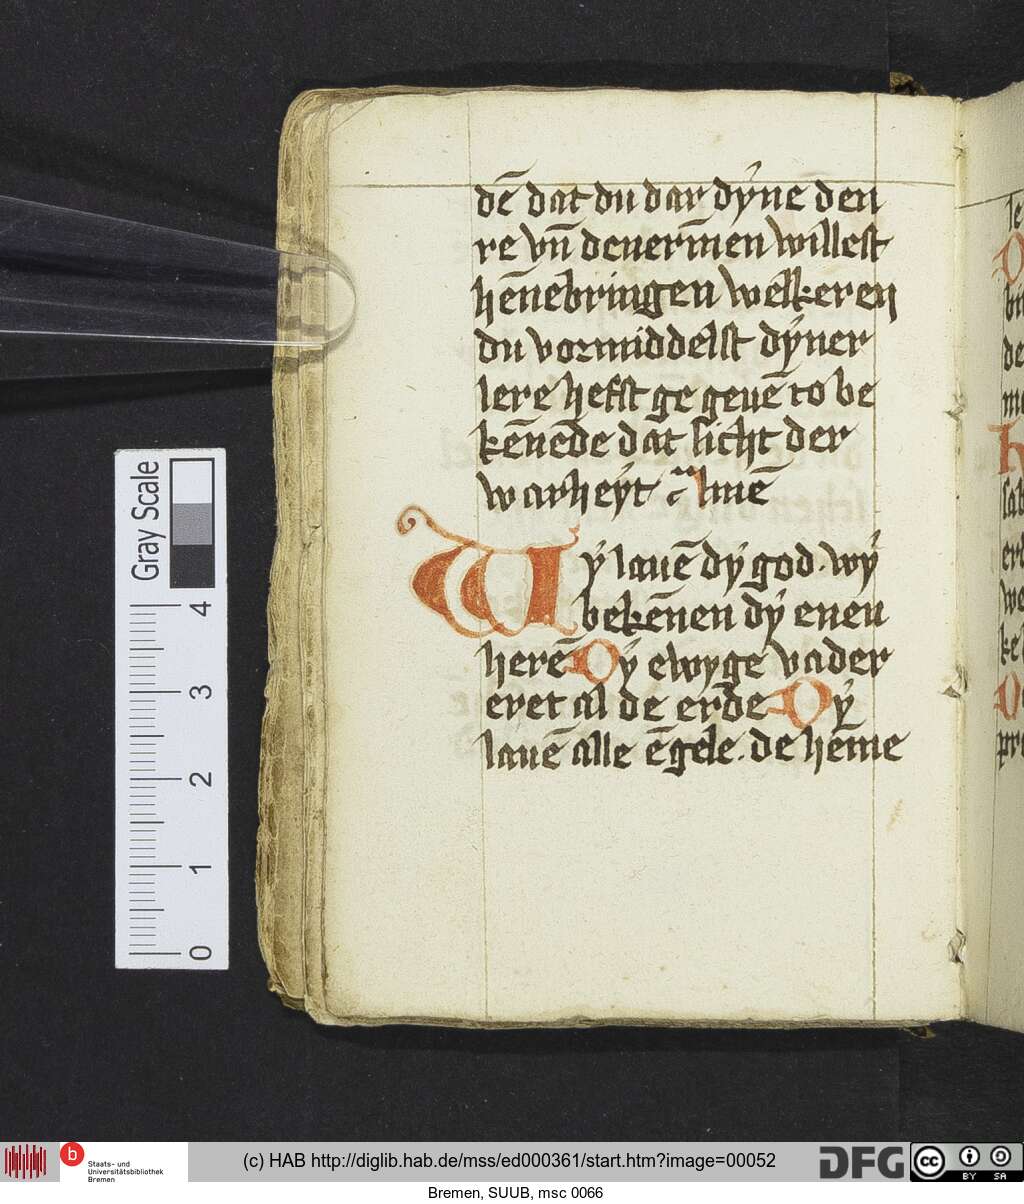 dē dat du dar dẏne den
re vn̄ deuerm̄en willest
hēnebringen welkeren
du vormiddelst dẏner
lere hefst ge geuē to be
kēnēde dat licht der
warheẏt Amē
Wẏ lauē dẏ god. wẏ
bekēnen dẏ enen
herē Dẏ ewyge vader
eret al de erde Dẏ
lauē alle ēgele. de hēme
le
de
pr
Gray Scale
4
3
2
1
0
b Staats- und
Universitätsbibliothek
Bremen
(c) HAB http://diglib.hab.de/mss/ed000361/start.htm?image=00052
DFG
cc BY SA
Bremen, SUUB, msc 0066